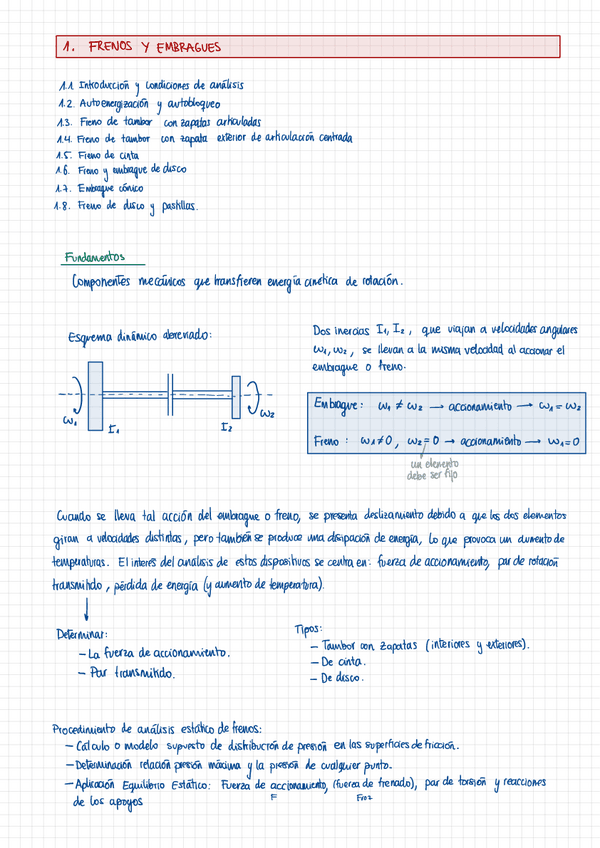 1. FRENOS Y EMBRAGUES
1.1 Introducción y condiciones de análisis
1.2. Autoenergización y autobloqueo
1.3. Freno de tambor con zapatas articuladas
1.4. Freno de tambor con zapata exterior de articulación centrada
1.5. Freno de cinta
1.6. Freno y embrague de disco
1.7. Embrague cónico
1.8. Freno de disco y pastillas.
Fundamentos
Componentes mecánicos que transfieren energía cinética de rotación.
Esquema dinámico abreviado:
ω₁ I₁ I₂ ω₂
Dos inercias I₁, I₂, que viajan a velocidades angulares
ω₁, ω₂, se llevan a la misma velocidad al accionar el
embrague o freno.
Embrague: ω₁ ≠ ω₂ → accionamiento → ω₁ = ω₂
Freno: ω₁≠0, ω₂=0 → accionamiento → ω₁=0
un elemento
debe ser fijo
Cuando se lleva tal acción del embrague o freno, se presenta deslizamiento debido a que los dos elementos
giran a velocidades distintas, pero también se produce una disipación de energía, lo que provoca un aumento de
temperaturas. El interés del análisis de estos dispositivos se centra en: fuerza de accionamiento, par de rotación
transmitido, pérdida de energía (y aumento de temperatura).
Determinar:
- La fuerza de accionamiento.
- Par transmitido.
Tipos:
- Tambor con zapatas (interiores y exteriores).
- De cinta.
- De disco.
Procedimiento de análisis estático de frenos:
- Cálculo o modelo supuesto de distribución de presión en las superficies de fricción.
- Determinación relación presión máxima y la presión de cualquier punto.
- Aplicación Equilibrio Estático: Fuerza de accionamiento, (fuerza de frenado), par de torsión y reacciones
F Froz
de los apoyos